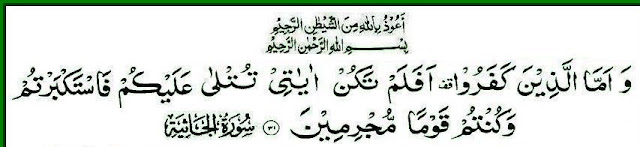 اَعُوْذُ بِاللّٰهِ مِنَ الشَّيْطٰنِ الرَّجِيْمِ
بِسْمِ اللّٰهِ الرَّحْمٰنِ الرَّحِيْمِ
وَ اَمَّا الَّذِيْنَ كَفَرُوْا قف اَفَلَمْ تَكُنْ اٰيٰتِيْ تُتْلٰى عَلَيْكُمْ فَاسْتَكْبَرْتُمْ
وَكُنْتُمْ قَوْمًا مُّجْرِمِيْنَ ﴿٣١﴾ سُوْرَةُ الْجَاثِيَةِ